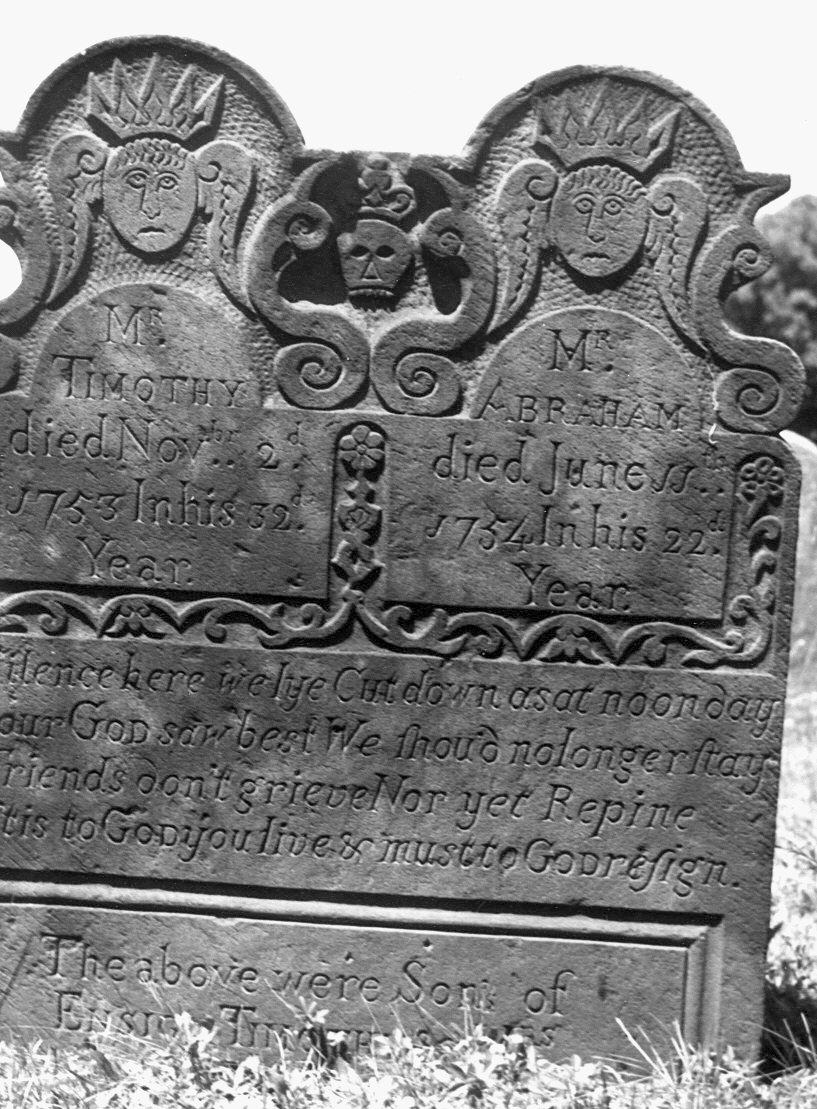 Mr.
TIMOTHY
died Novbr. 2d.
1753 In his 32d.
Year.
Mr.
ABRAHAM
died June 11th.
1754 In his 22d.
Year.
Silence here we lye Cut down as at noonday
our GOD saw best We ſhou'd no longer ſtay
Friends don't grieve Nor yet Repine
tis to GOD you live & must to GOD reſign.
The above were Sons of
ENSIGN TIMOTHY